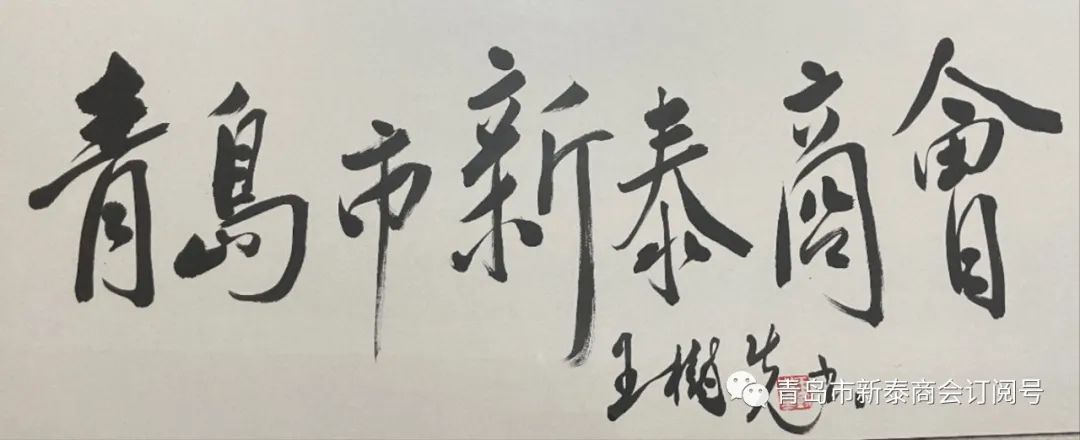 青島市新泰商會
王樹先
青岛市新泰商会订阅号